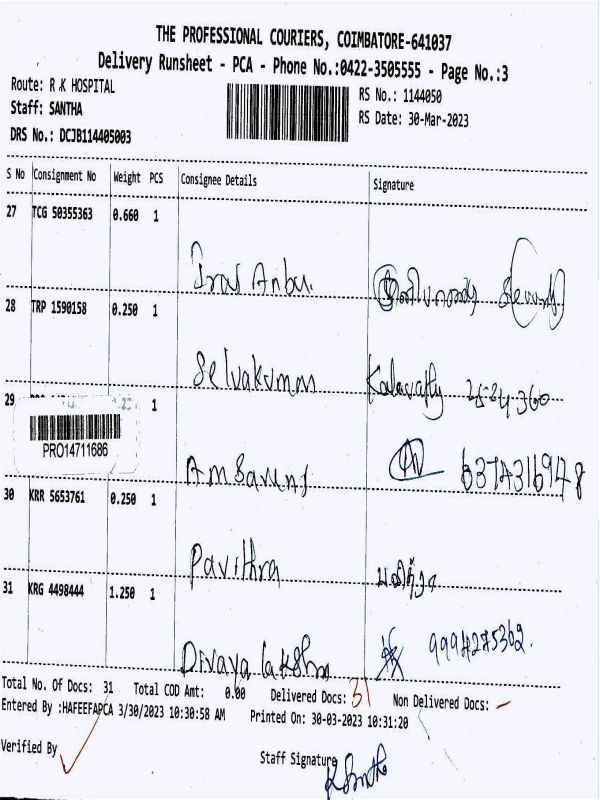 THE PROFESSIONAL COURIERS, COIMBATORE-641037
Delivery Runsheet - PCA - Phone No.:0422-3505555 - Page No.:3
Route: R K HOSPITAL
RS No.: 1144050
Staff: SANTHA
RS Date: 30-Mar-2023
DRS No.: DCJB114405003
S No Consignment No Weight PCS Consignee Details Signature
27 TCG 50355363 0.660 1
Anbu
28 TRP 1590158 0.250 1
Selvakumar
29 1
PRO14711686
6374316948
30 KRR 5653761 0.250 1
Pavithra
31 KRG 4498444 1.250 1
9994275362.
Total No. Of Docs: 31 Total COD Amt: 0.00 Delivered Docs: 31 Non Delivered Docs: -
Entered By :HAFEEFAPCA 3/30/2023 10:30:58 AM Printed On: 30-03-2023 10:31:20
Verified By
Staff Signature